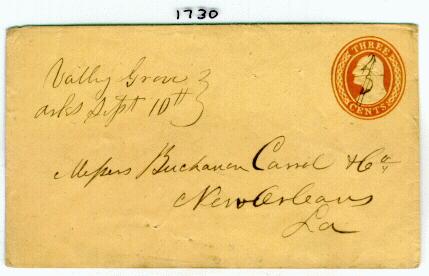 1730
THREE
CENTS
Valley Grove
arks Sept 10th
Messrs Buchanan Carrol & Co
New Orleans
La